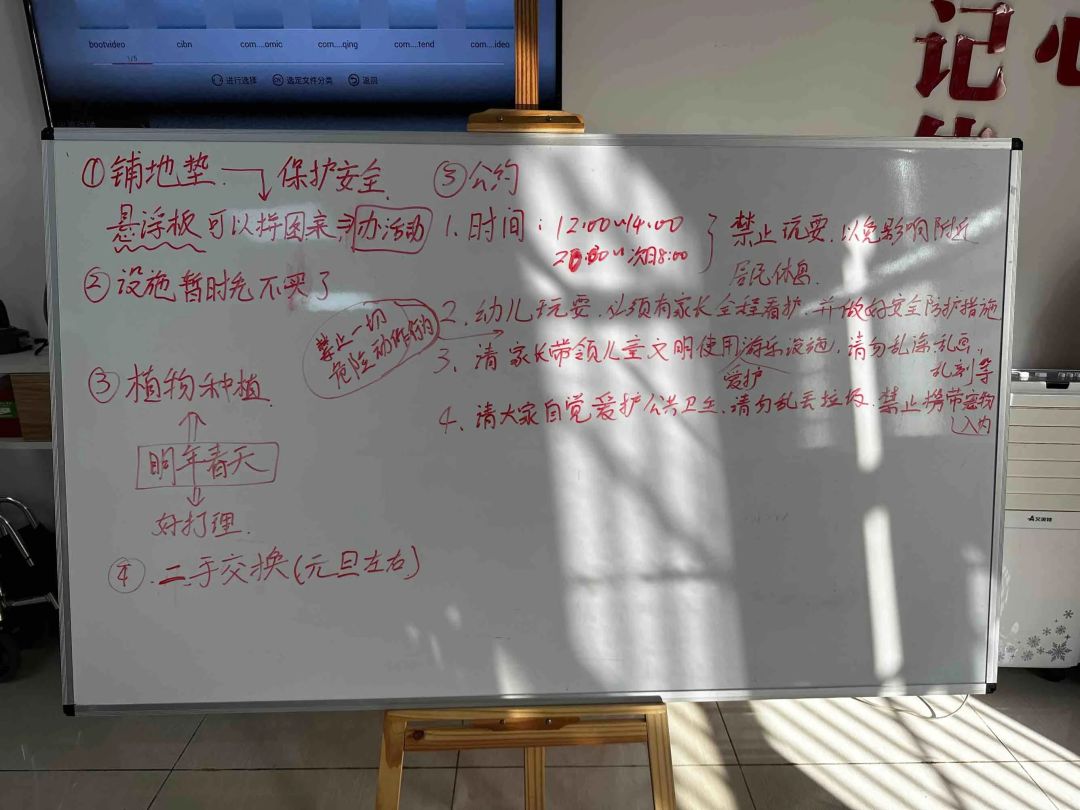 bootvideo cibn com....omic com....qing com....tend com....ideo
1/5
进行选择 OK 选定文件分类 返回
记 心
① 铺地垫 → 保护安全
悬浮板可以拼图案 办活动
② 设施暂时先不买了
③ 植物种植
明年春天
好打理
④ 二手交换(元旦左右)
③ 公约
1. 时间: 12:00~14:00
20:00~次日8:00
禁止玩耍,以免影响附近
居民休息
2. 幼儿玩耍,必须有家长全程看护,并做好安全防护措施
禁止一切
危险动作的
3. 请家长带领儿童文明使用游乐设施,请勿乱涂乱画,
乱刻等
爱护
4. 请大家自觉爱护公共卫生,请勿乱丢垃圾,禁止携带宠物
入内
艾美特